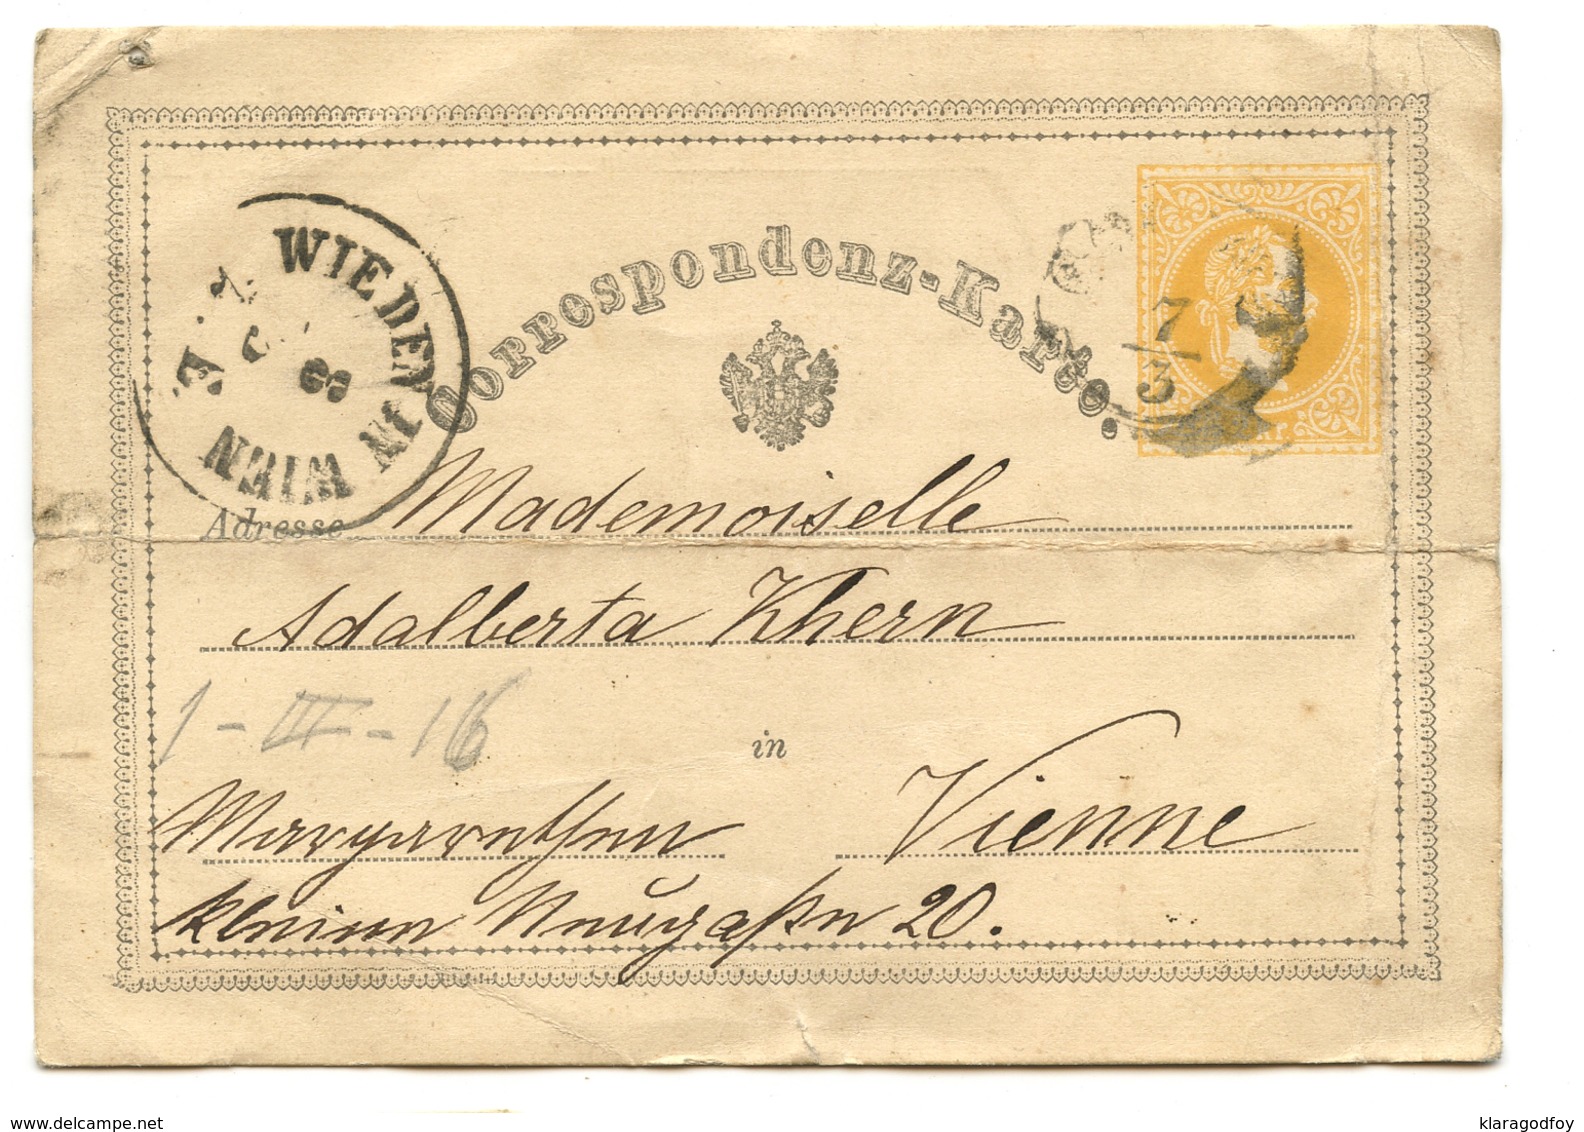 Correspondenz-Karte.
WIEDEN IN WIEN
7/3
kr.
Adresse Mademoiselle
Adalberta Khern
1-III-16
in Vienne
Margarethen
kleine Neugaße 20.
www.delcampe.net
klaragodfoy